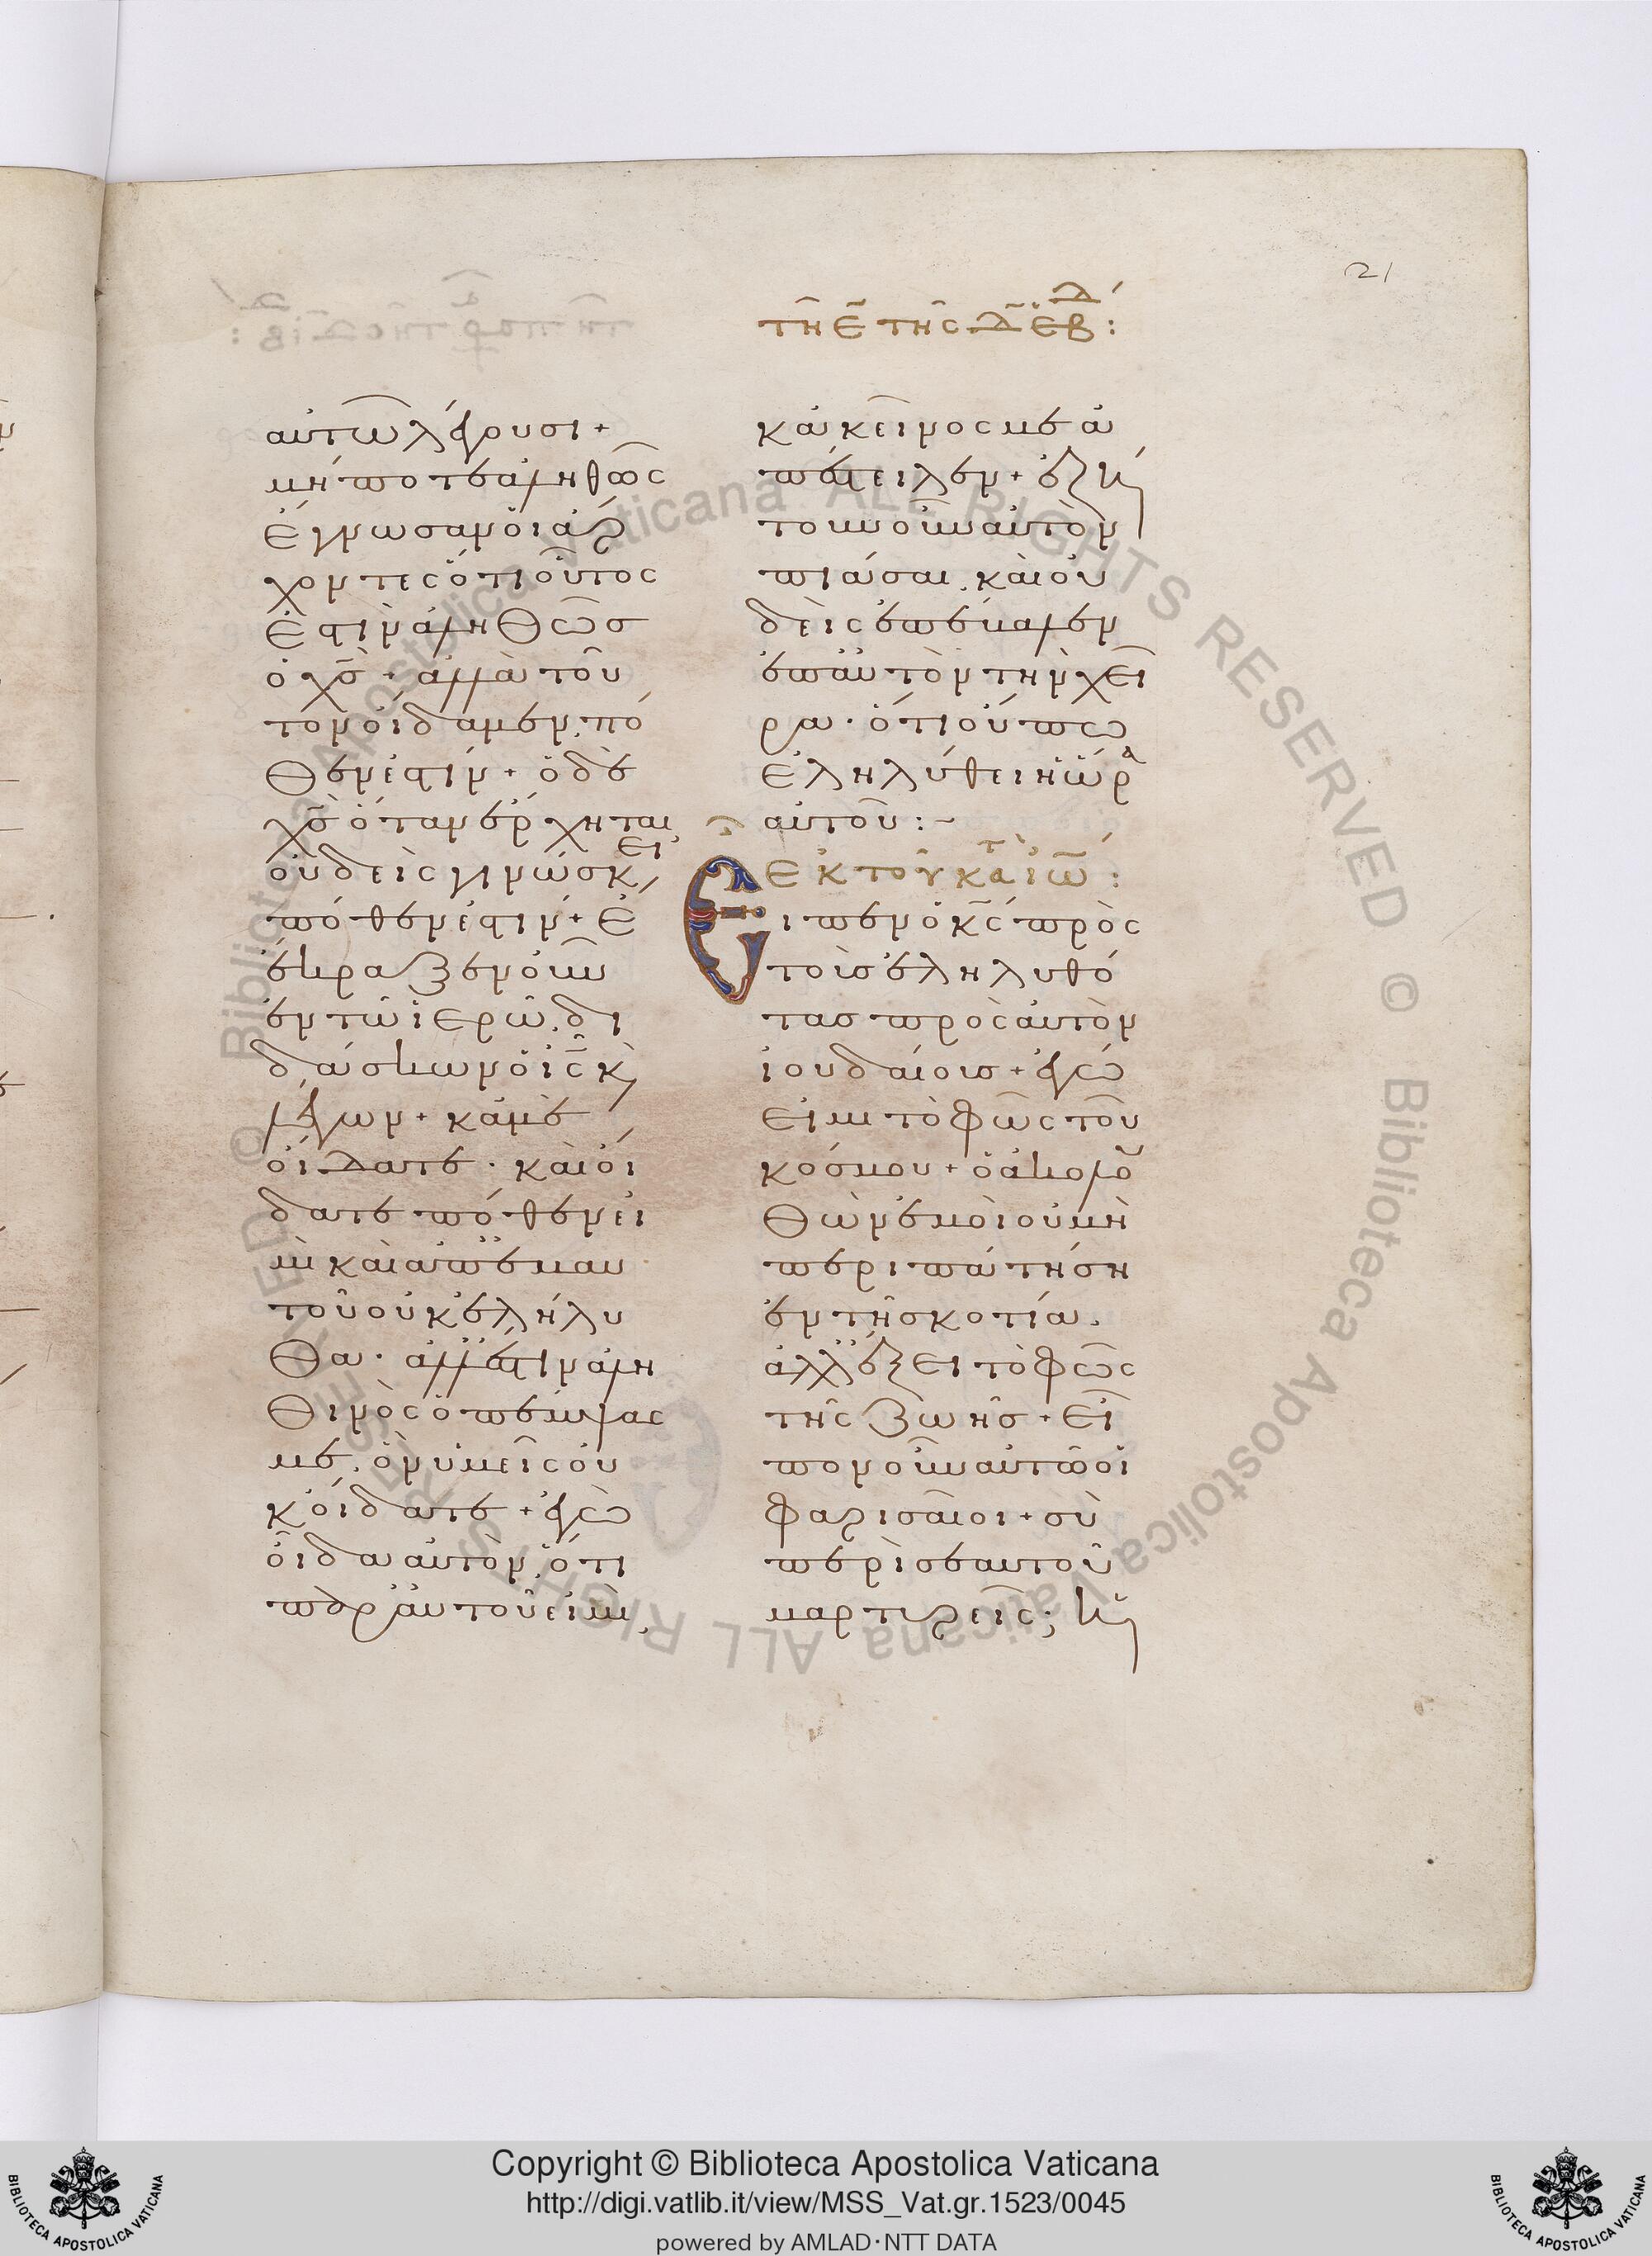 21
τῆ ε̄ τῆς δ̄ ἑβδ:
αὐτῶ λέγουσι+
μήποτε ἀληθῶς
ἔγνωσαν οἱ ἄρ
χοντες ὅτι οὗτος
ἐστὶν ἀληθῶσ
ὁ χσ̄· ἀλλὰ τοῦ
τον οἴδαμεν, πό
θεν ἐστίν+ ὁ δὲ
χσ̄ ὅταν ἔρχηται
οὐδεὶς γινώσκει
πόθεν ἐστίν+ Ἔ
ἔκραζεν οὖν
ἐν τῶ ἱερῶ, δι
δάσκων ὁ ις̄ κὶ
λέγων+ κἀμὲ
οἴδατε· καὶ οἴ
δατε πόθεν εἰ
μὶ καὶ ἀπ' ἐμαυ
τοῦ οὐκ ἐλήλυ
θα· ἀλλ' ἔστιν ἀλη
θινὸς ὁ πέμψας
με, ὃν ὑμεῖς οὐ
κ οἴδατε+ ἐγὼ
οἶδα αὐτὸν, ὅτι
παρ' αὐτοῦ εἰμὶ,
κἀκεῖνος με ἀ
πέστειλεν+ ἐζή
τουν οὖν αὐτὸν
πιάσαι, καὶ οὐ
δεὶς ἐπέβαλεν
ἐπ' αὐτὸν τὴν χεῖ
ρα· ὅτι οὔπω
ἐληλύθει ἡ ὥρα
αὐτοῦ:~
ἐκ τοῦ κατὰ ἰω̄:
Εἶπεν ὁ κς̄ πρὸς
τοὺσ ἐληλυθό
τασ πρὸς αὐτὸν
ἰουδαίουσ+ ἐγώ
εἰμι τὸ φῶς τοῦ
κόσμου+ ὁ ἀκολου
θῶν ἐμοὶ οὐ μὴ
περιπατήση
ἐν τῆ σκοτία,
ἀλλ' ἕξει τὸ φῶς
τῆς ζωῆσ+ εἶ
πον οὖν αὐτῶ οἱ
φαρισαῖοι+ σὺ
περὶ σεαυτοῦ
μαρτυρεῖς; ἡ
Copyright © Biblioteca Apostolica Vaticana
http://digi.vatlib.it/view/MSS_Vat.gr.1523/0045
powered by AMLAD·NTT DATA